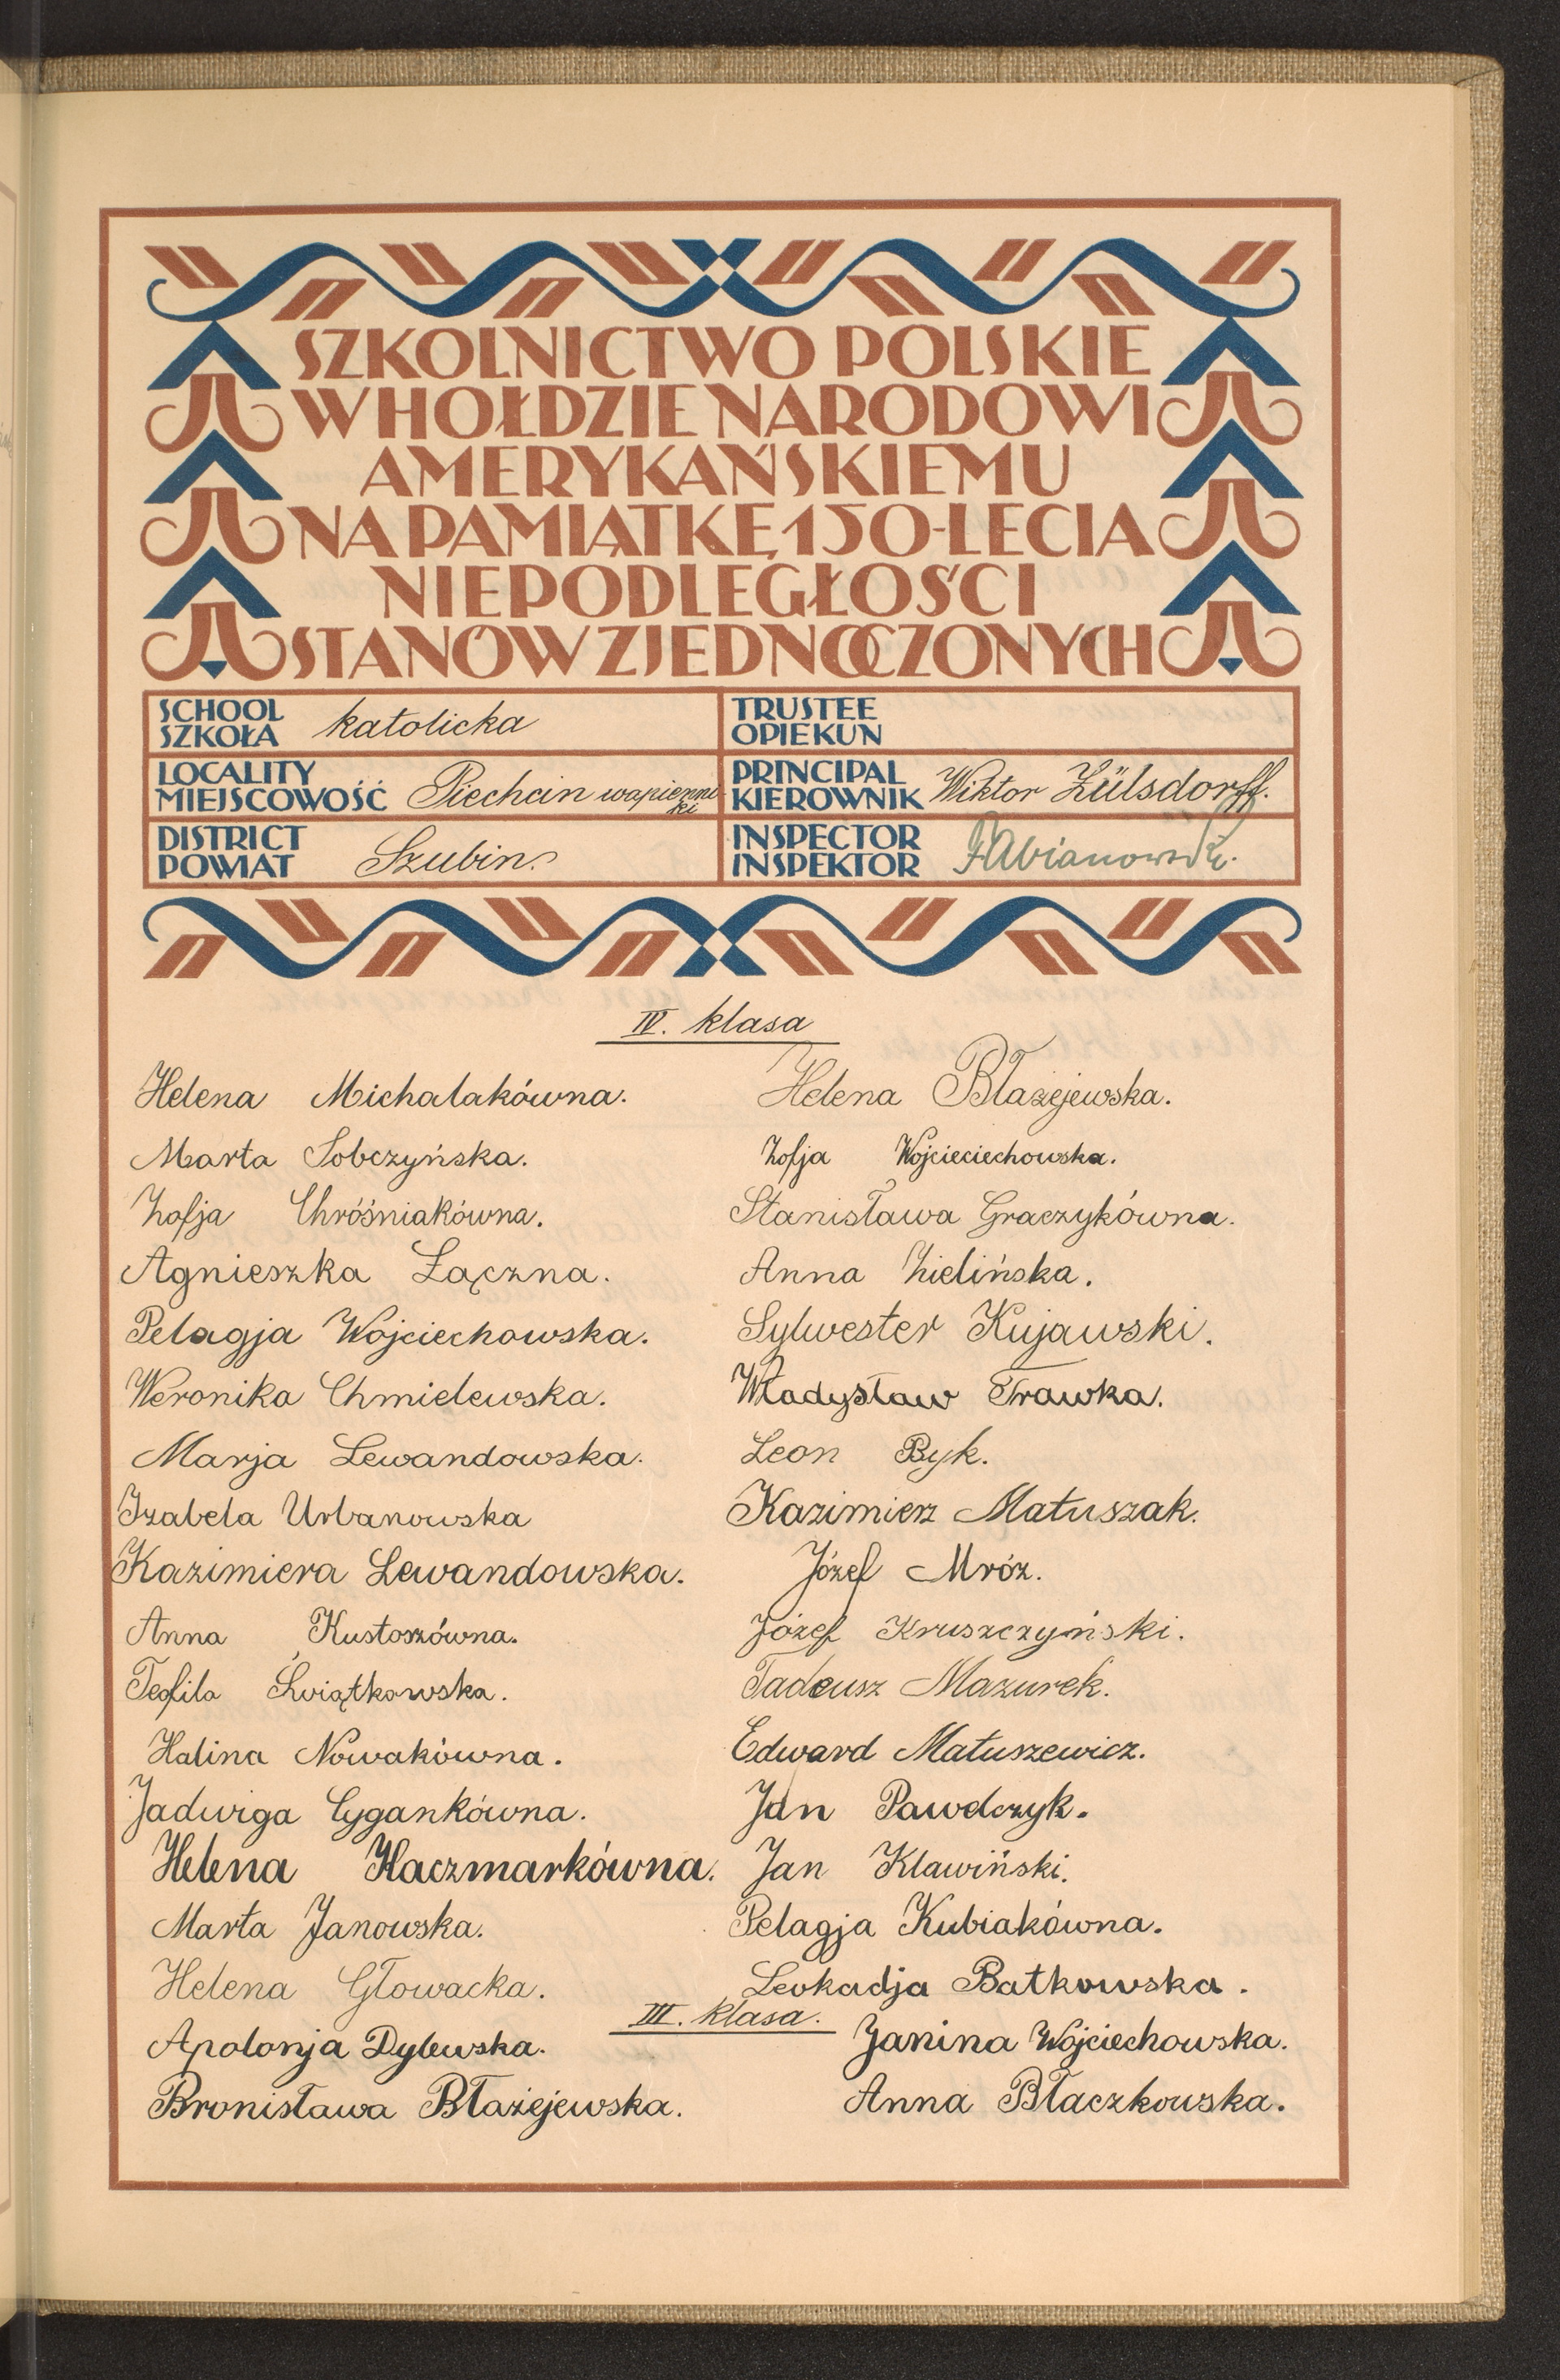 SZKOLNICTWO POLSKIE
W HOŁDZIE NARODOWI
AMERYKAŃSKIEMU
NA PAMIĄTKĘ 150-LECIA
NIEPODLEGŁOŚCI
STANÓW ZJEDNOCZONYCH
SCHOOL
SZKOŁA katolicka
TRUSTEE
OPIEKUN
LOCALITY
MIEJSCOWOŚĆ Piechcin wapienni
ki
PRINCIPAL
KIEROWNIK Wiktor Zülsdorff.
DISTRICT
POWIAT Szubin
INSPECTOR
INSPEKTOR Fabianowski.
IV. klasa
Helena Michalakówna.
Marta Sobczyńska.
Zofja Chróśniakówna.
Agnieszka Łączna.
Pelagja Wojciechowska.
Weronika Chmielewska.
Marja Lewandowska.
Izabela Urbanowska
Kazimiera Lewandowska.
Anna Kustoszówna.
Teofila Świątkowska.
Halina Nowakówna.
Jadwiga Cygankówna.
Helena Kaczmarkówna.
Marta Janowska.
Helena Głowacka.
Helena Błażejewska.
Zofja Wojcieciechowska.
Stanisława Graczykówna.
Anna Zielińska.
Sylwester Kujawski.
Władysław Trawka.
Leon Byk.
Kazimierz Matuszak.
Józef Mróz.
Józef Kruszczyński.
Tadeusz Mazurek.
Edward Matuszewicz.
Jan Pawelczyk.
Jan Klawiński.
Pelagja Kubiakówna.
Leokadja Batkowska.
III. klasa.
Apolonja Dylewska.
Bronisława Błażejewska.
Janina Wojciechowska.
Anna Błaczkowska.